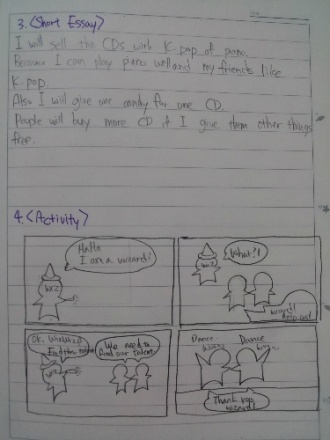 3. <Short Essay>
I will sell the CDs with K-pop of piano.
Because I can play piano well and my friends like
K-pop.
Also I will give one candy for one CD.
People will buy more CD if I give them other things
free.
4. <Activity>
Hello
I am a wizard!
WIZ
What?!
WIZ
wizard!
help us!
OK.
Find the talent
We need to
find our talent.
Dance
Dance
Thank you
wizard!